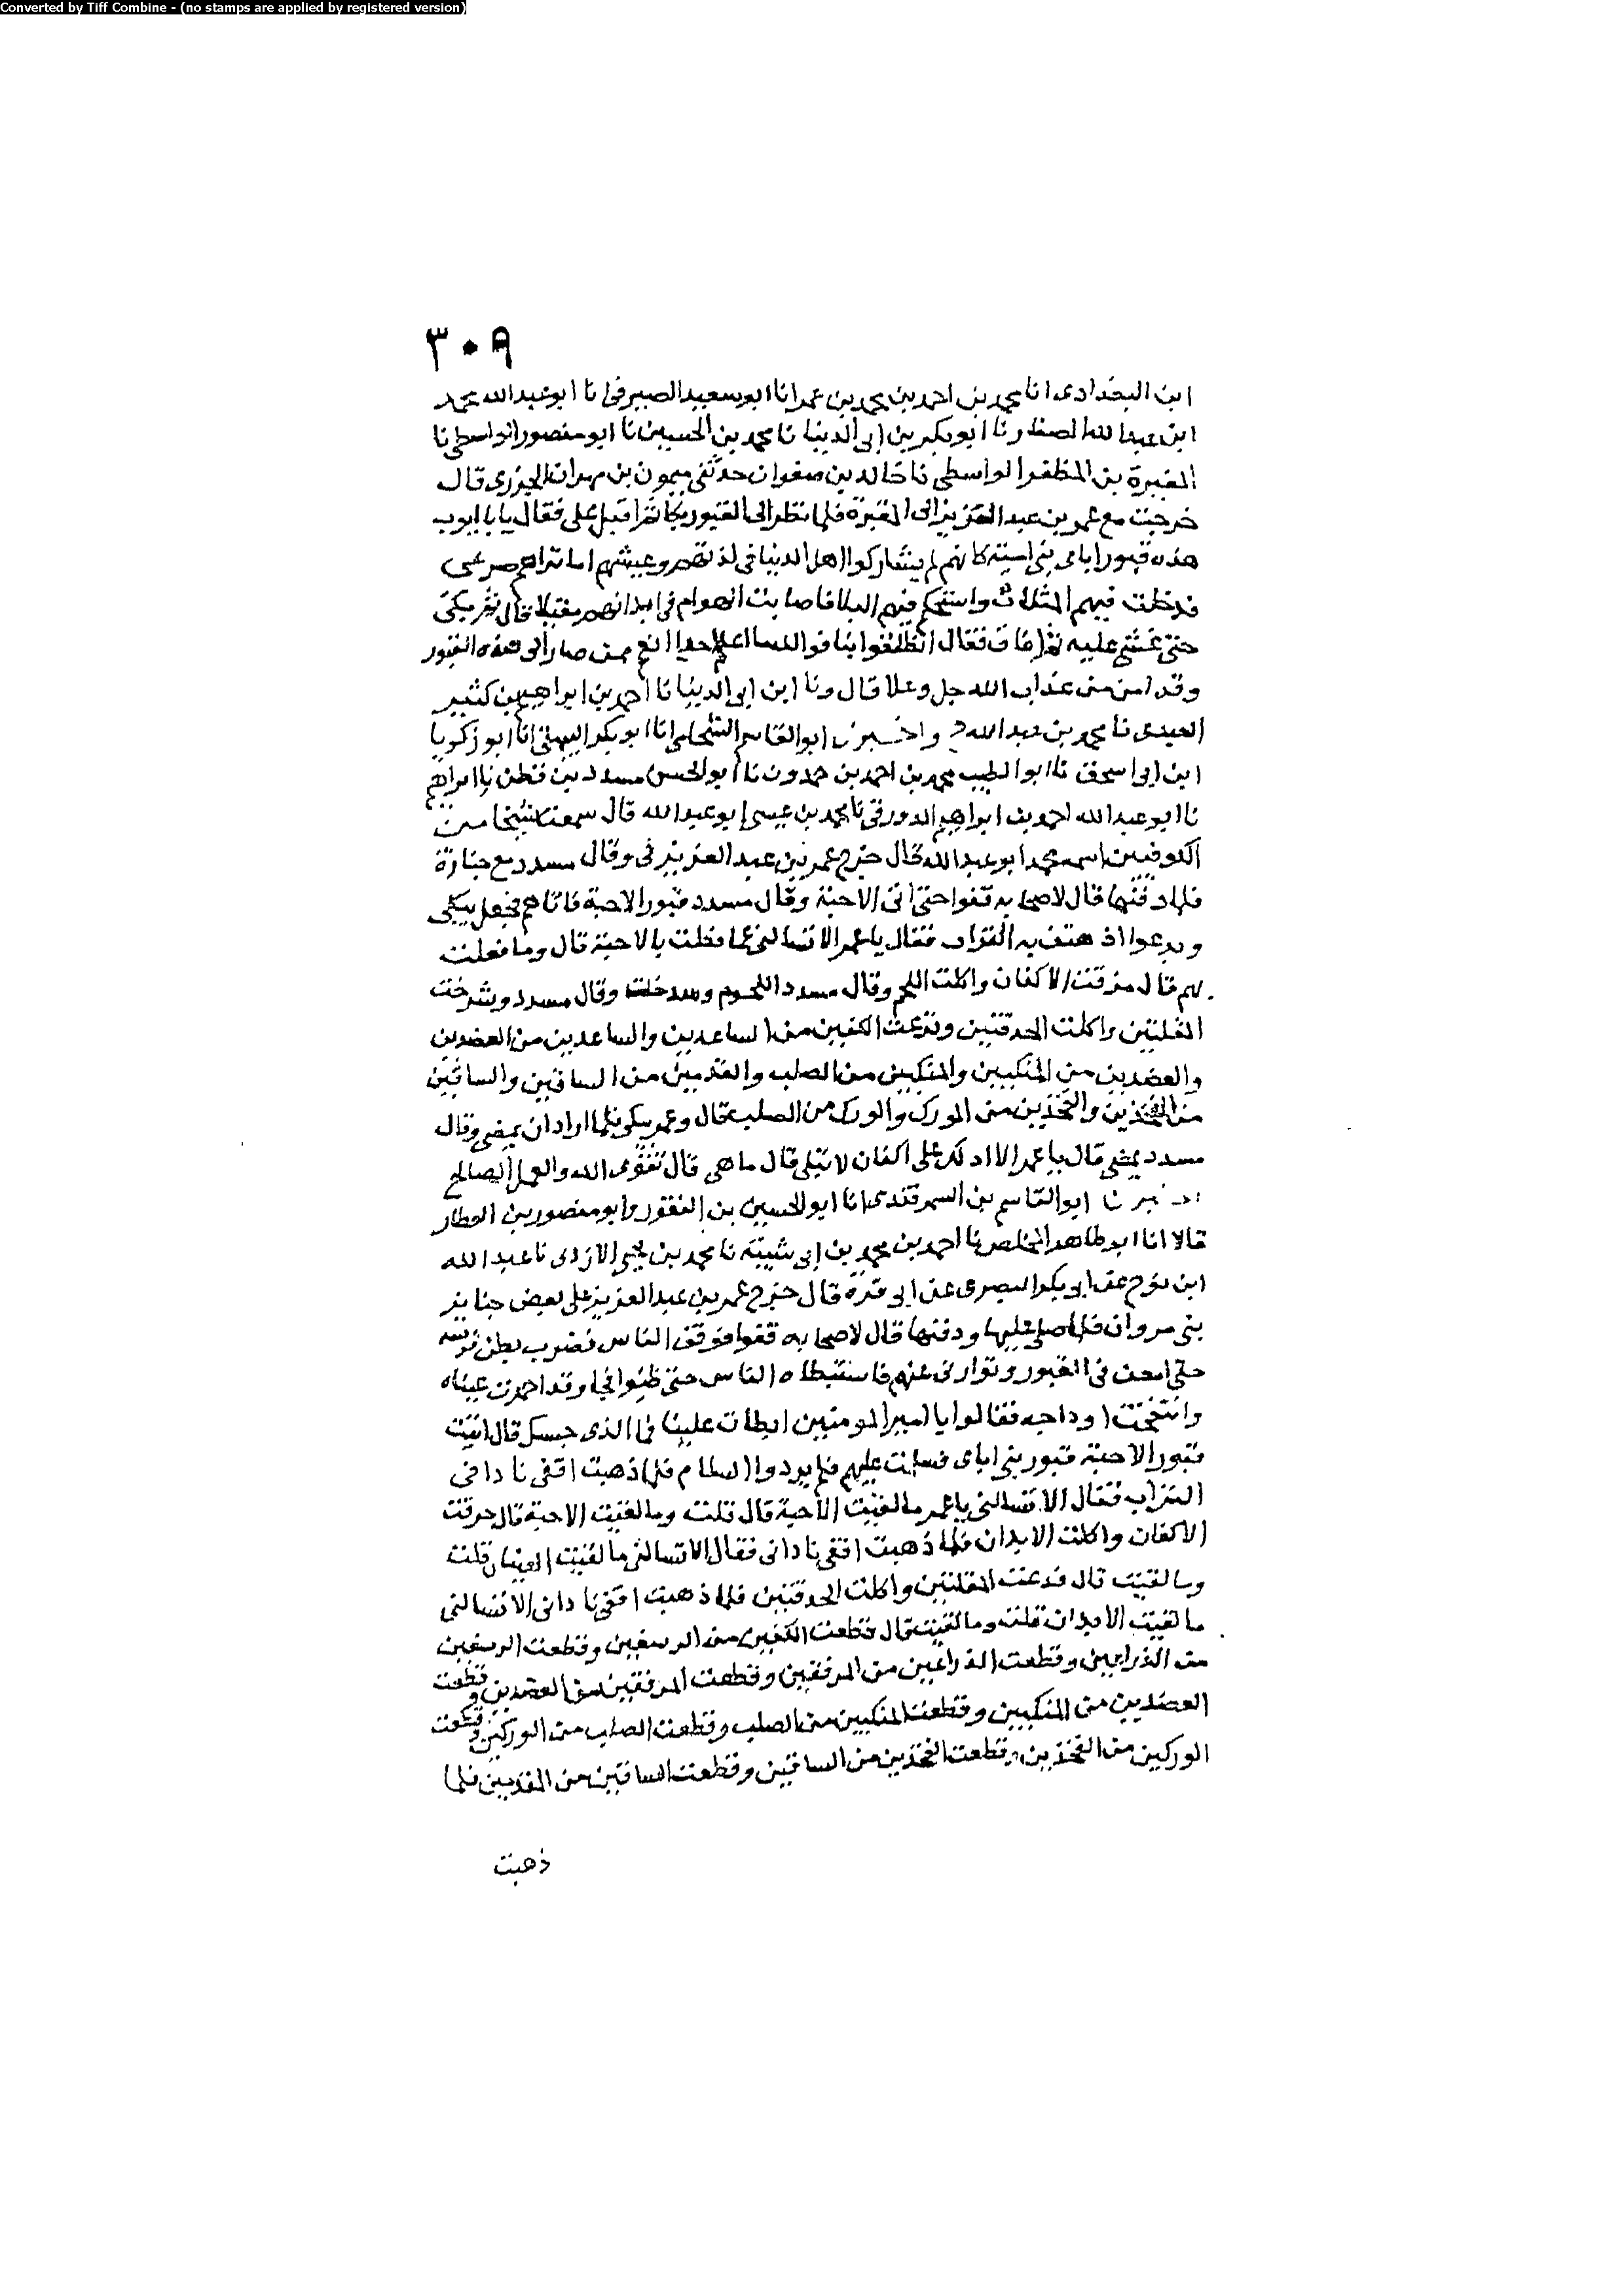 Converted by Tiff Combine - (no stamps are applied by registered version)
٣٠٩
ابن البغدادى انا محمد بن احمد بن محمد بن عمر انا ابو سعيد الصيرفى انا ابو عبد الله محمد
ابن عبد الله الصفار نا ابو بكر بن ابى الدنيا نا محمد بن الحسين نا ابو منصور الواسطى نا
المغيرة بن المظفر الواسطى نا خالد بن صفوان حدثنى ميمون بن مهران الجزرى قال
خرجت مع عمر بن عبد العزيز الى المقبرة فلما نظر الى القبور بكا ثم اقبل على فقال يا با ايوب
هذه قبور اباى بنى امية كانهم لم يشاركوا اهل الدنيا فى لذتهم وعيشهم اما تراهم صرعى
قد خلت فيهم المثلات واستحكم فيهم البلا فاصابت الهوام فى ابدانهم مقيلا قال ثم بكى
حتى غشى عليه ثم افاق فقال انطلقوا بنا فوالله ما اعلم احدا انعم ممن صار الى هذه القبور
وقد امن من عذاب الله جل وعلا قال ونا ابن ابى الدنيا نا احمد بن ابراهيم بن كثير
العبدى نا محمد بن عبد الله ح واخبرنا ابو القاسم الشحامى انا ابو بكر البيهقى انا ابو زكريا
ابن ابى اسحق نا ابو الطيب محمد بن احمد بن حمدون نا ابو الحسن مسدد بن قطن نا ابراهيم
نا ابو عبد الله احمد بن ابراهيم الدورقى نا محمد بن عيسى ابو عبد الله قال سمعت شيخا من
الكوفيين اسمه محمد ابو عبد الله قال خرج عمر بن عبد العزيز فى وقال مسدد مع جنازة
فلما دفنها قال لاصحابه قفوا حتى اتى الاحبة وقال مسدد قبور الاحبة فاتاهم فجعل يبكى
ويدعوا اذ هتف به التراب فقال يا عمر الا تسالنى عما فعلت بالاحبة قال وما فعلت
بهم قال مزقت الاكفان واكلت اللحم وقال مسدد اللحوم وشدخت وقال مسدد وشرخت
المقلتين واكلت الحدقتين ونزعت الكفين من الساعدين والساعدين من العضدين
والعضدين من المنكبين والمنكبين من الصلب والقدمين من الساقين والساقين
من الفخذين والفخذين من الورك والورك من الصلب قال وعمر يبكى فلما اراد ان يمضى وقال
مسدد يمشى قال يا عمر الا ادلك على اكفان لا تبلى قال ما هى قال تقوى الله والعمل الصالح
اخبرنا ابو القاسم بن السمرقندى انا ابو الحسين بن النقور وابو منصور بن العطار
قالا انا ابو طاهر المخلص نا احمد بن محمد بن ابى شيبة نا محمد بن يحيى الازدى نا عبد الله
ابن نوح عن ابى بكر البصرى عن ابى قرة قال خرج عمر بن عبد العزيز على بعض جنايز
بنى مروان فلما صلى عليها ودفنها قال لاصحابه قفوا فوقف الناس فضرب بطن فرسه
حتى امعن فى القبور وتوارى عنهم فاستبطاه الناس حتى ظنوا فجا وقد احمرت عيناه
وانتفخت اوداجه فقالوا يا امير المومنين ابطات علينا فما الذى حبسك قال اتيت
قبور الاحبة قبور بنى اباى فسلمت عليهم فلم يردوا السلام فلما ذهبت اقفى نادانى
التراب فقال الا تسالنى يا عمر ما لقيت الاحبة قال قلت وما لقيت الاحبة قال خرقت
الاكفان واكلت الابدان فلما ذهبت اقفى نادانى فقال الا تسالنى ما لقيت العينان قلت
وما لقيت قال قدعت المقلتين واكلت الحدقتين فلما ذهبت اقفى نادانى الا تسالنى
ما لقيت الابدان قلت وما لقيت قال قطعت الكفين من الرسغين وقطعت الرسغين
من الذراعين وقطعت الذراعين من المرفقين وقطعت المرفقين من العضدين وقطعت
العضدين من المنكبين وقطعت المنكبين من الصلب وقطعت الصلب من الوركين وقطعت
الوركين من الفخذين وقطعت الفخذين من الساقين وقطعت الساقين من القدمين فلما
ذهبت